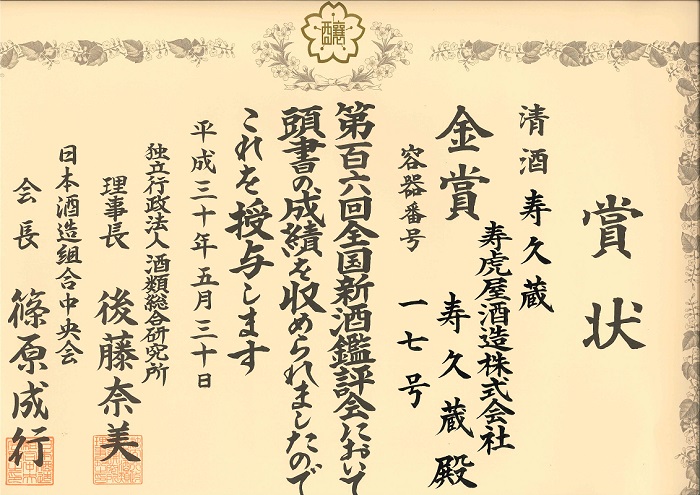 醸
賞状
清酒 寿久蔵
寿虎屋酒造株式会社
金賞 寿久蔵殿
容器番号 一七号
第百六回全国新酒鑑評会において
頭書の成績を収められましたので
これを授与します
平成三十年五月三十日
独立行政法人 酒類総合研究所
理事長 後藤奈美
日本酒造組合中央会
会長 篠原成行